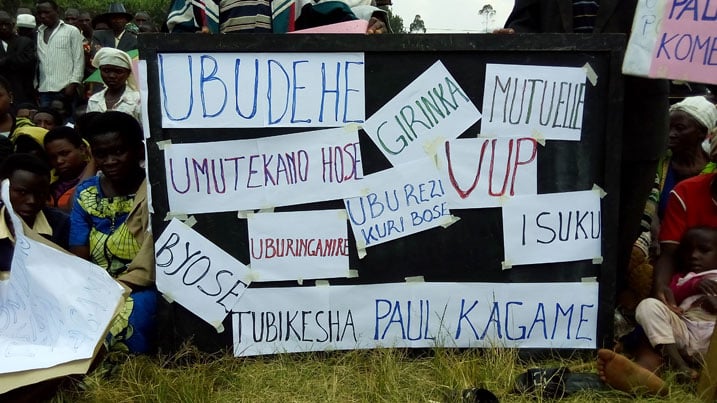 UBUDEHE
GIRINKA
MUTUELLE
UMUTEKANO HOSE
UBUREZI
KURI BOSE
VUP
BYOSE
UBURINGANIRE
ISUKU
TUBIKESHA PAUL KAGAME
PAUL
KOME